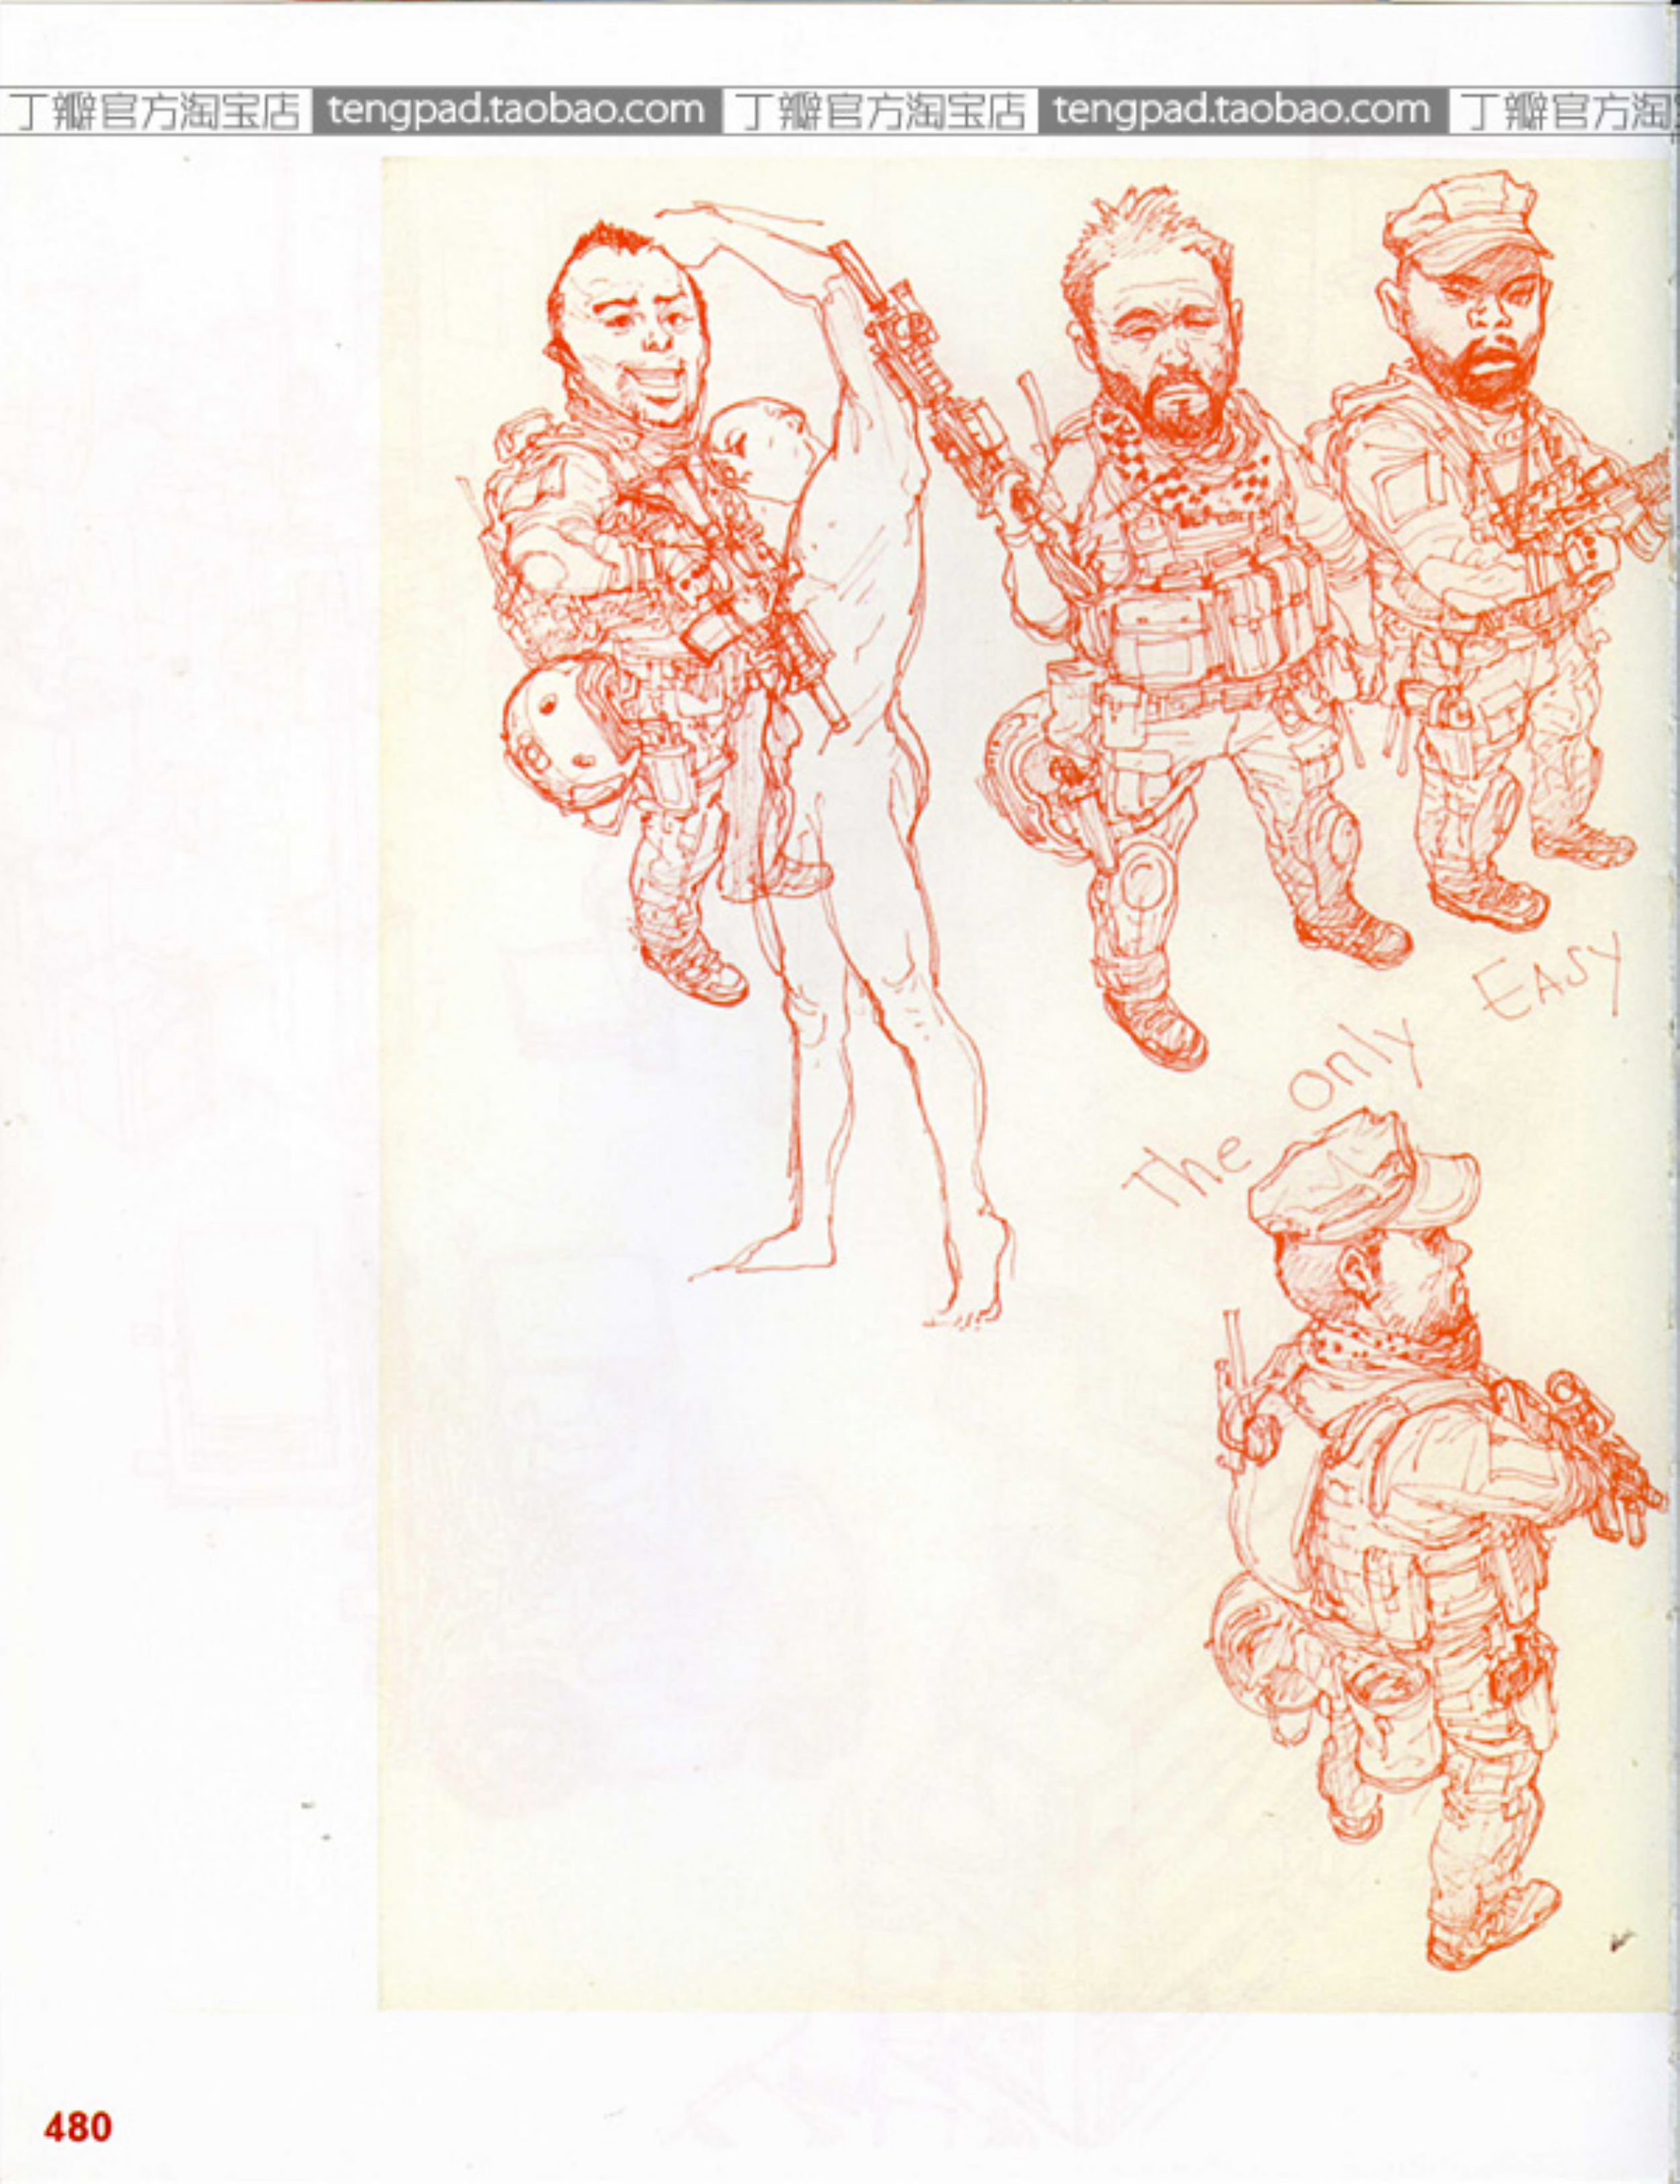 丁瓣官方淘宝店 tengpad.taobao.com 丁瓣官方淘宝店 tengpad.taobao.com 丁瓣官方淘
The only EASY
480